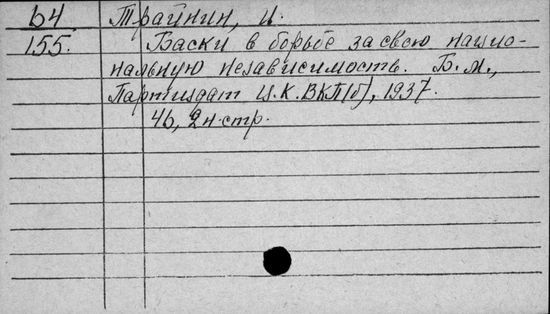 Б4 Трайнин, И.
155. Баски в борьбе за свою нацио-
нальную независимость. Б. м.,
Партиздат Ц.К.ВКП(б), 1937.
46, 2 н. стр.